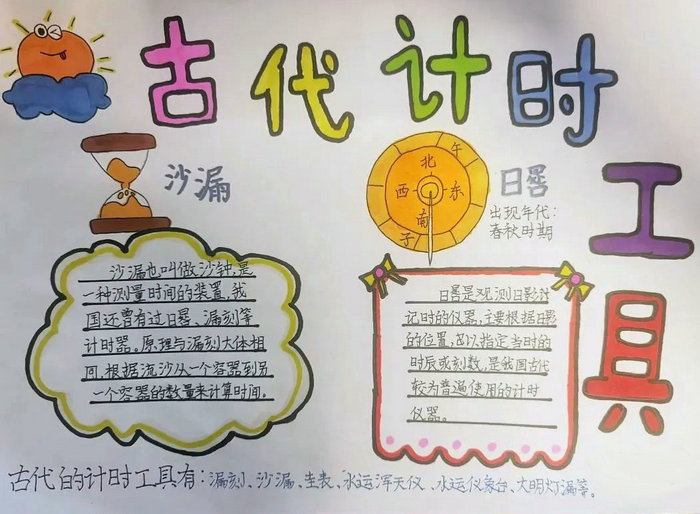 古代计时
工具
沙漏
北
东
南
西
午
子
日晷
出现年代:
春秋时期
沙漏也叫做沙钟,是
一种测量时间的装置,我
国还曾有过日晷、漏刻等
计时器。原理与漏刻大体相
同,根据流沙从一个容器到另
一个容器的数量来计算时间。
日晷是观测日影计
记时的仪器,主要根据日影
的位置,以指定当时的
时辰或刻数,是我国古代
较为普遍使用的计时
仪器。
古代的计时工具有:漏刻、沙漏、圭表、水运浑天仪、水运仪象台、大明灯漏等。